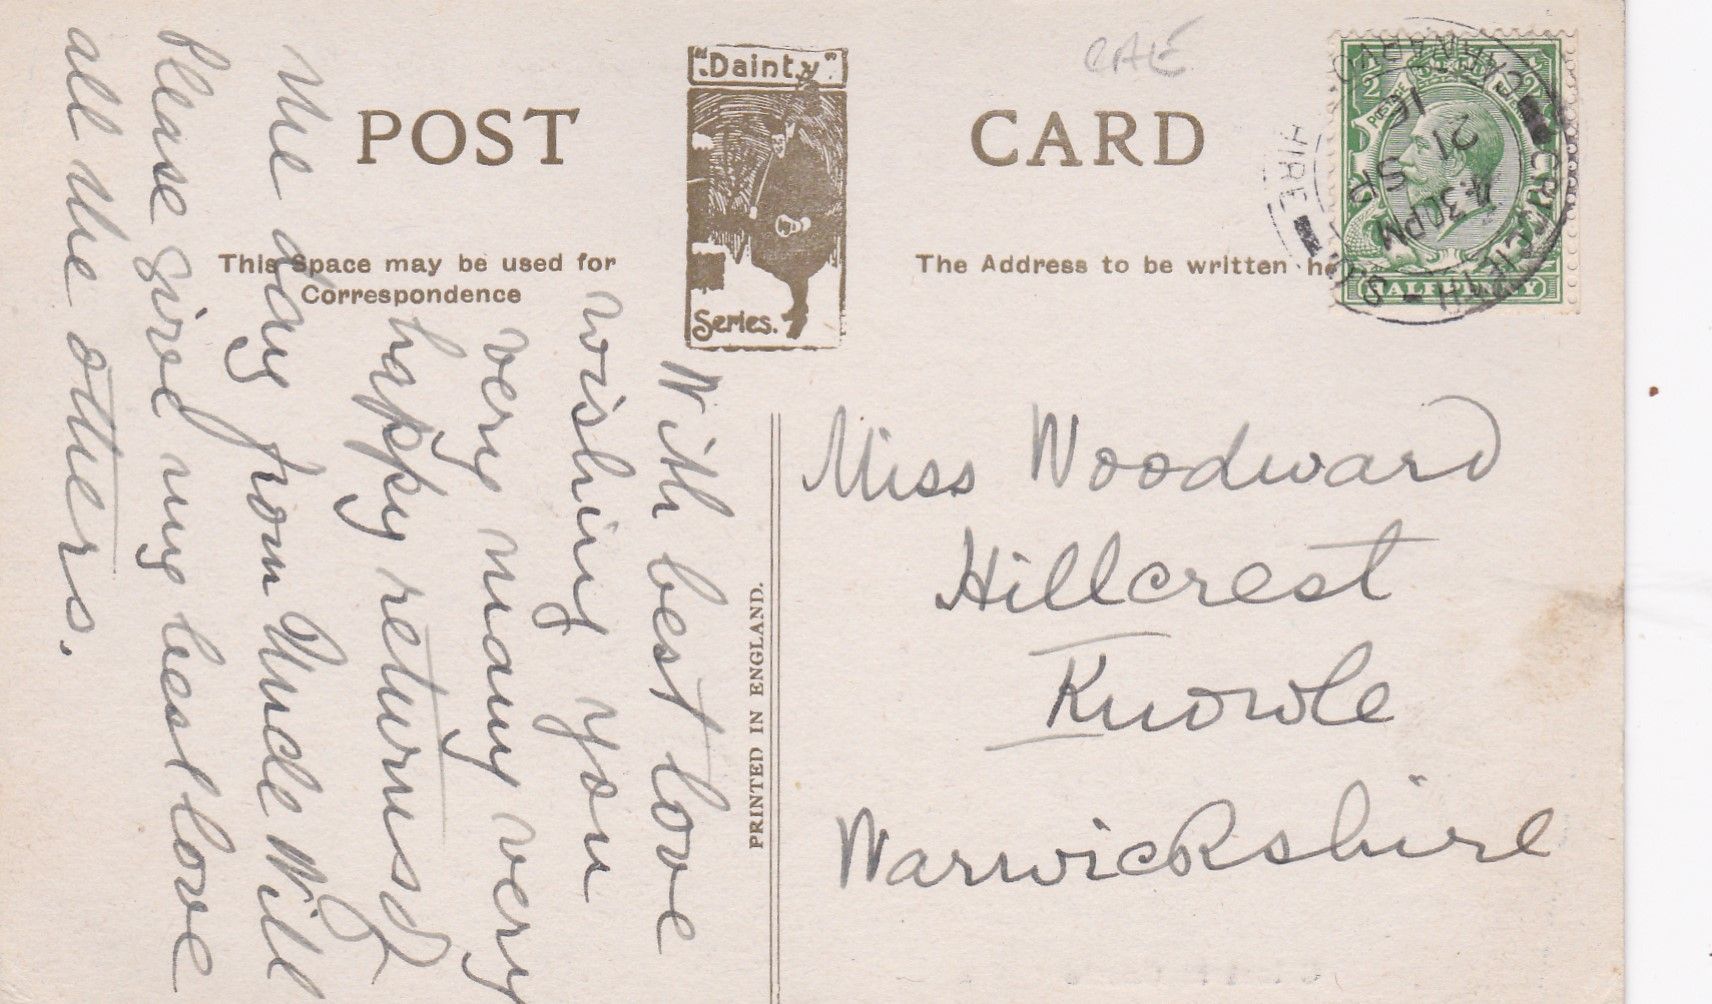 POST CARD
"Dainty"
Series.
CAE
This Space may be used for
Correspondence
The Address to be written he
HALFPENNY
CRICCIETH - S.O.
CARNARVO
HIRE
4.30PM
21 SP
16
With best love
wishing you
very many very
happy returns of
the day from Uncle Will
Please give my best love
all the others.
PRINTED IN ENGLAND.
Miss Woodward
Hillcrest
Knowle
Warwickshire